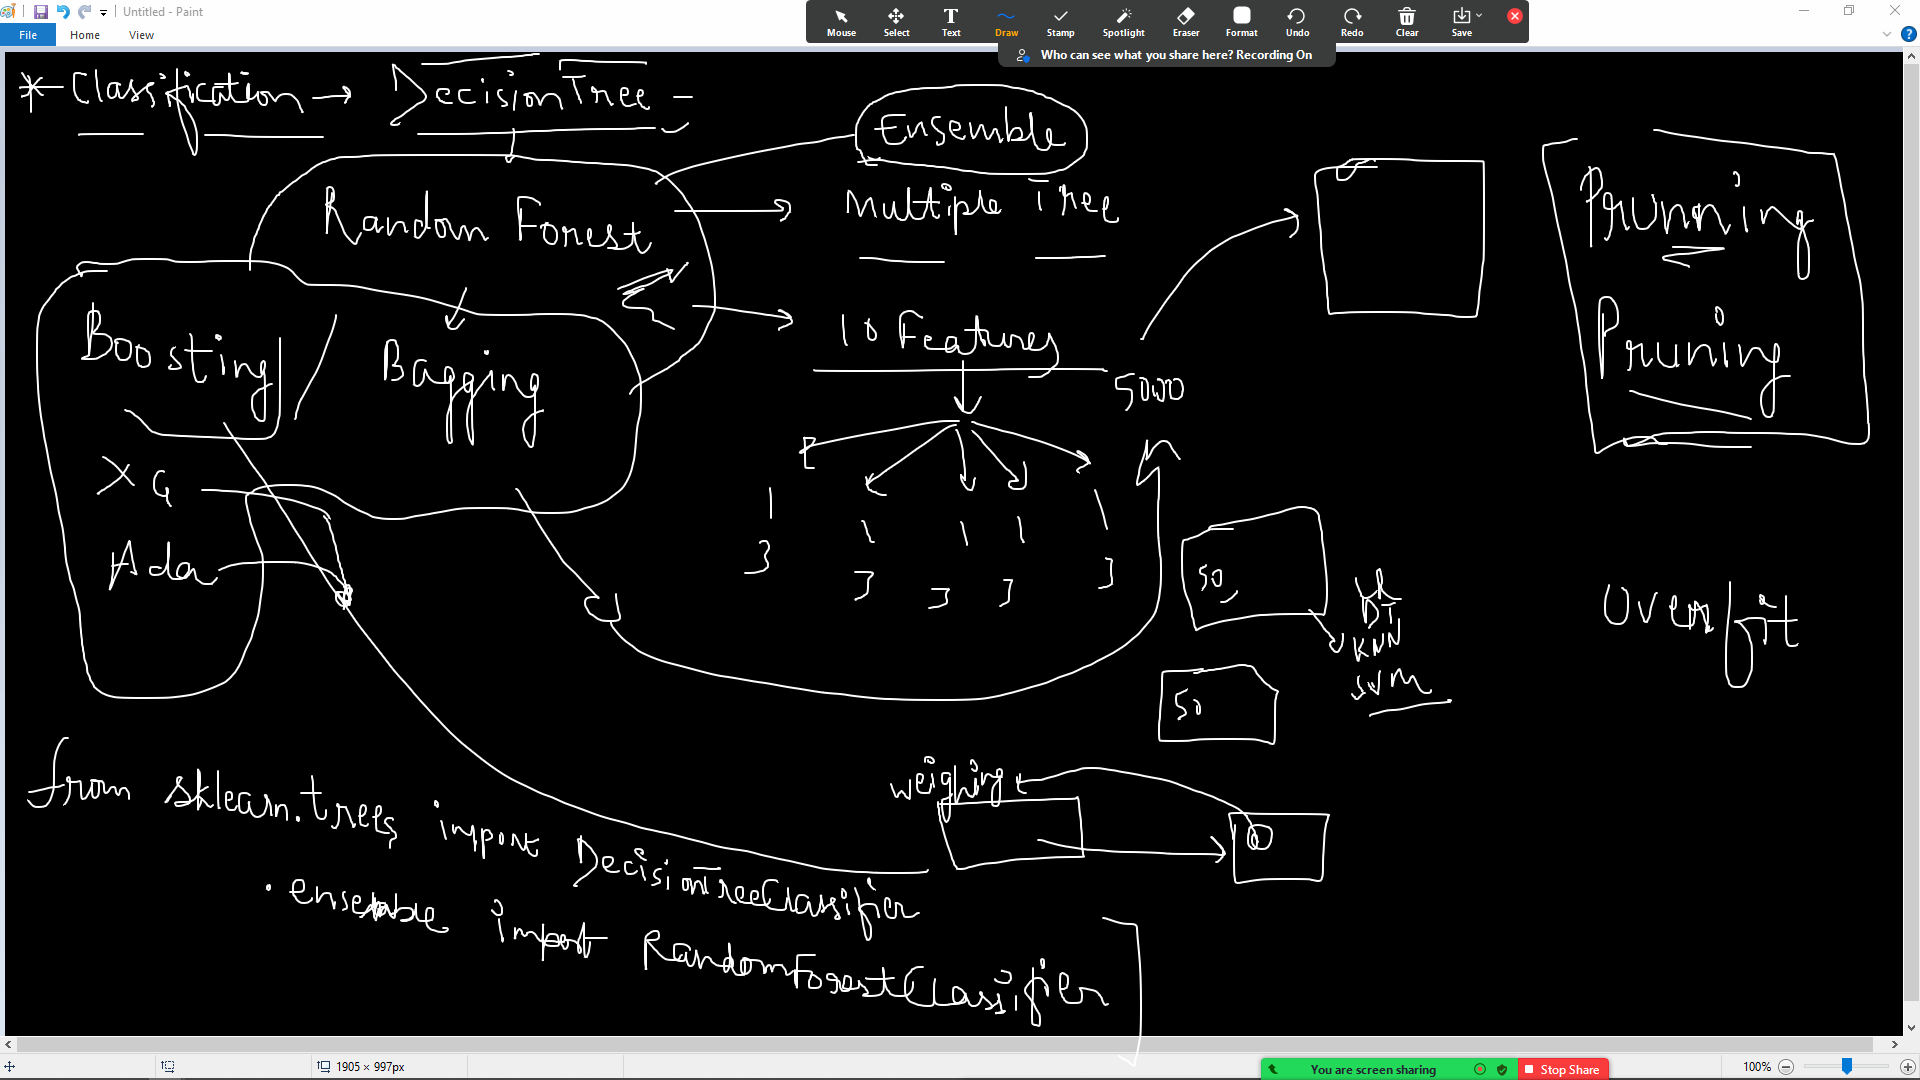 Untitled - Paint
File Home View
Mouse Select Text Draw Stamp Spotlight Eraser Format Undo Redo Clear Save
Who can see what you share here? Recording On
* Classification → Decision Tree -
Ensemble
Random Forest → Multiple Tree
Prunning
Boosting / Bagging
10 Features
Pruning
5000
XG
Ada
1 1 1 1 1
3 3 3 3 3
50
DT
KNN
SVM
Overfit
50
weighing
from sklearn.trees import DecisionTreeClassifier
. ensemble import RandomForestClassifier
1905 × 997px
You are screen sharing Stop Share
100%